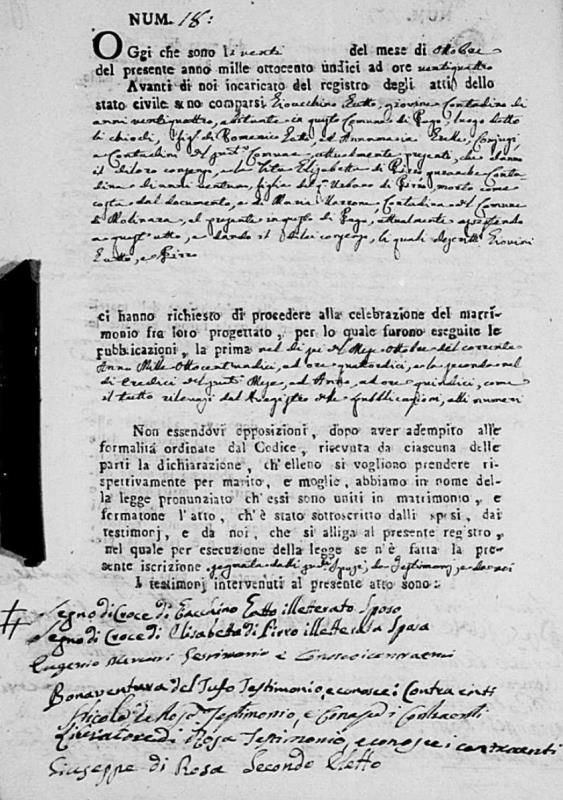 NUM. 18:
OGgi che sono li venti del mese di Ottobre
del presente anno mille ottocento undici ad ore ventiquattro
Avanti di noi incaricato del registro degli atti dello
stato civile sono comparsi Gioacchino Zatto, giovine Contadino di
anni ventiquattro, abitante in questo Comune di Pago, luogo detto
li chiochi, figlio di Domenico Zatto, ed Annamaria Conjugi
e Contadini del Comune, attualmente presenti, che danno
il di loro consenzo, e la Zita Elisabetta di Pirro Contadina
di anni ventuno, figlia del q. Urbano di Pirro, morto come
costa dal documento, e di Maria Contadina del Comune
di Molinara, al presente in quello di Pago, attualmente
a quest'atto, e dando il di lei consenzo, li quali Giovini
Zatto, e Pirro
ci hanno richiesto di procedere alla celebrazione del matri-
monio fra loro progettato, per lo quale furono eseguite le
pubblicazioni, la prima nel di sei del Mese Ottobre del corrente
Anno Mille Ottocentundici, ad ore quattordici, e la seconda nel
di tredici del Mese, ed Anno, ad ore quindici, come
il tutto dal Registro delle pubblicazioni, alli numeri
Non essendovi opposizioni, dopo aver adempito alle
formalità ordinate dal Codice, ricevuta da ciascuna delle
parti la dichiarazione, ch'elleno si vogliono prendere ri-
spettivamente per marito, e moglie, abbiamo in nome del-
la legge pronunziato ch'essi sono uniti in matrimonio, e
formatone l'atto, ch'è stato sottoscritto dalli sposi, dai
testimonj, e da noi, che si alliga al presente registro,
nel quale per esecuzione della legge se n'è fatta la pre-
sente iscrizione segnata dalli Sposi, da Testimonj, e da noi
I testimonj intervenuti al presente atto sono:
Segno di Croce di Gacchino Zatto illetterato Sposo
Segno di Croce di Elisabetta di Pirro illetterata Sposa
Eugenio Testimonio e Conosco i contraenti
Bonaventura del Tufo Testimonio, e conosce i Contraenti
Nicola de Rosa Testimonio, e Conosco i Contraenti
di Rosa Testimonio, e conosce i contraenti
Giuseppe di Rosa Secondo Eletto